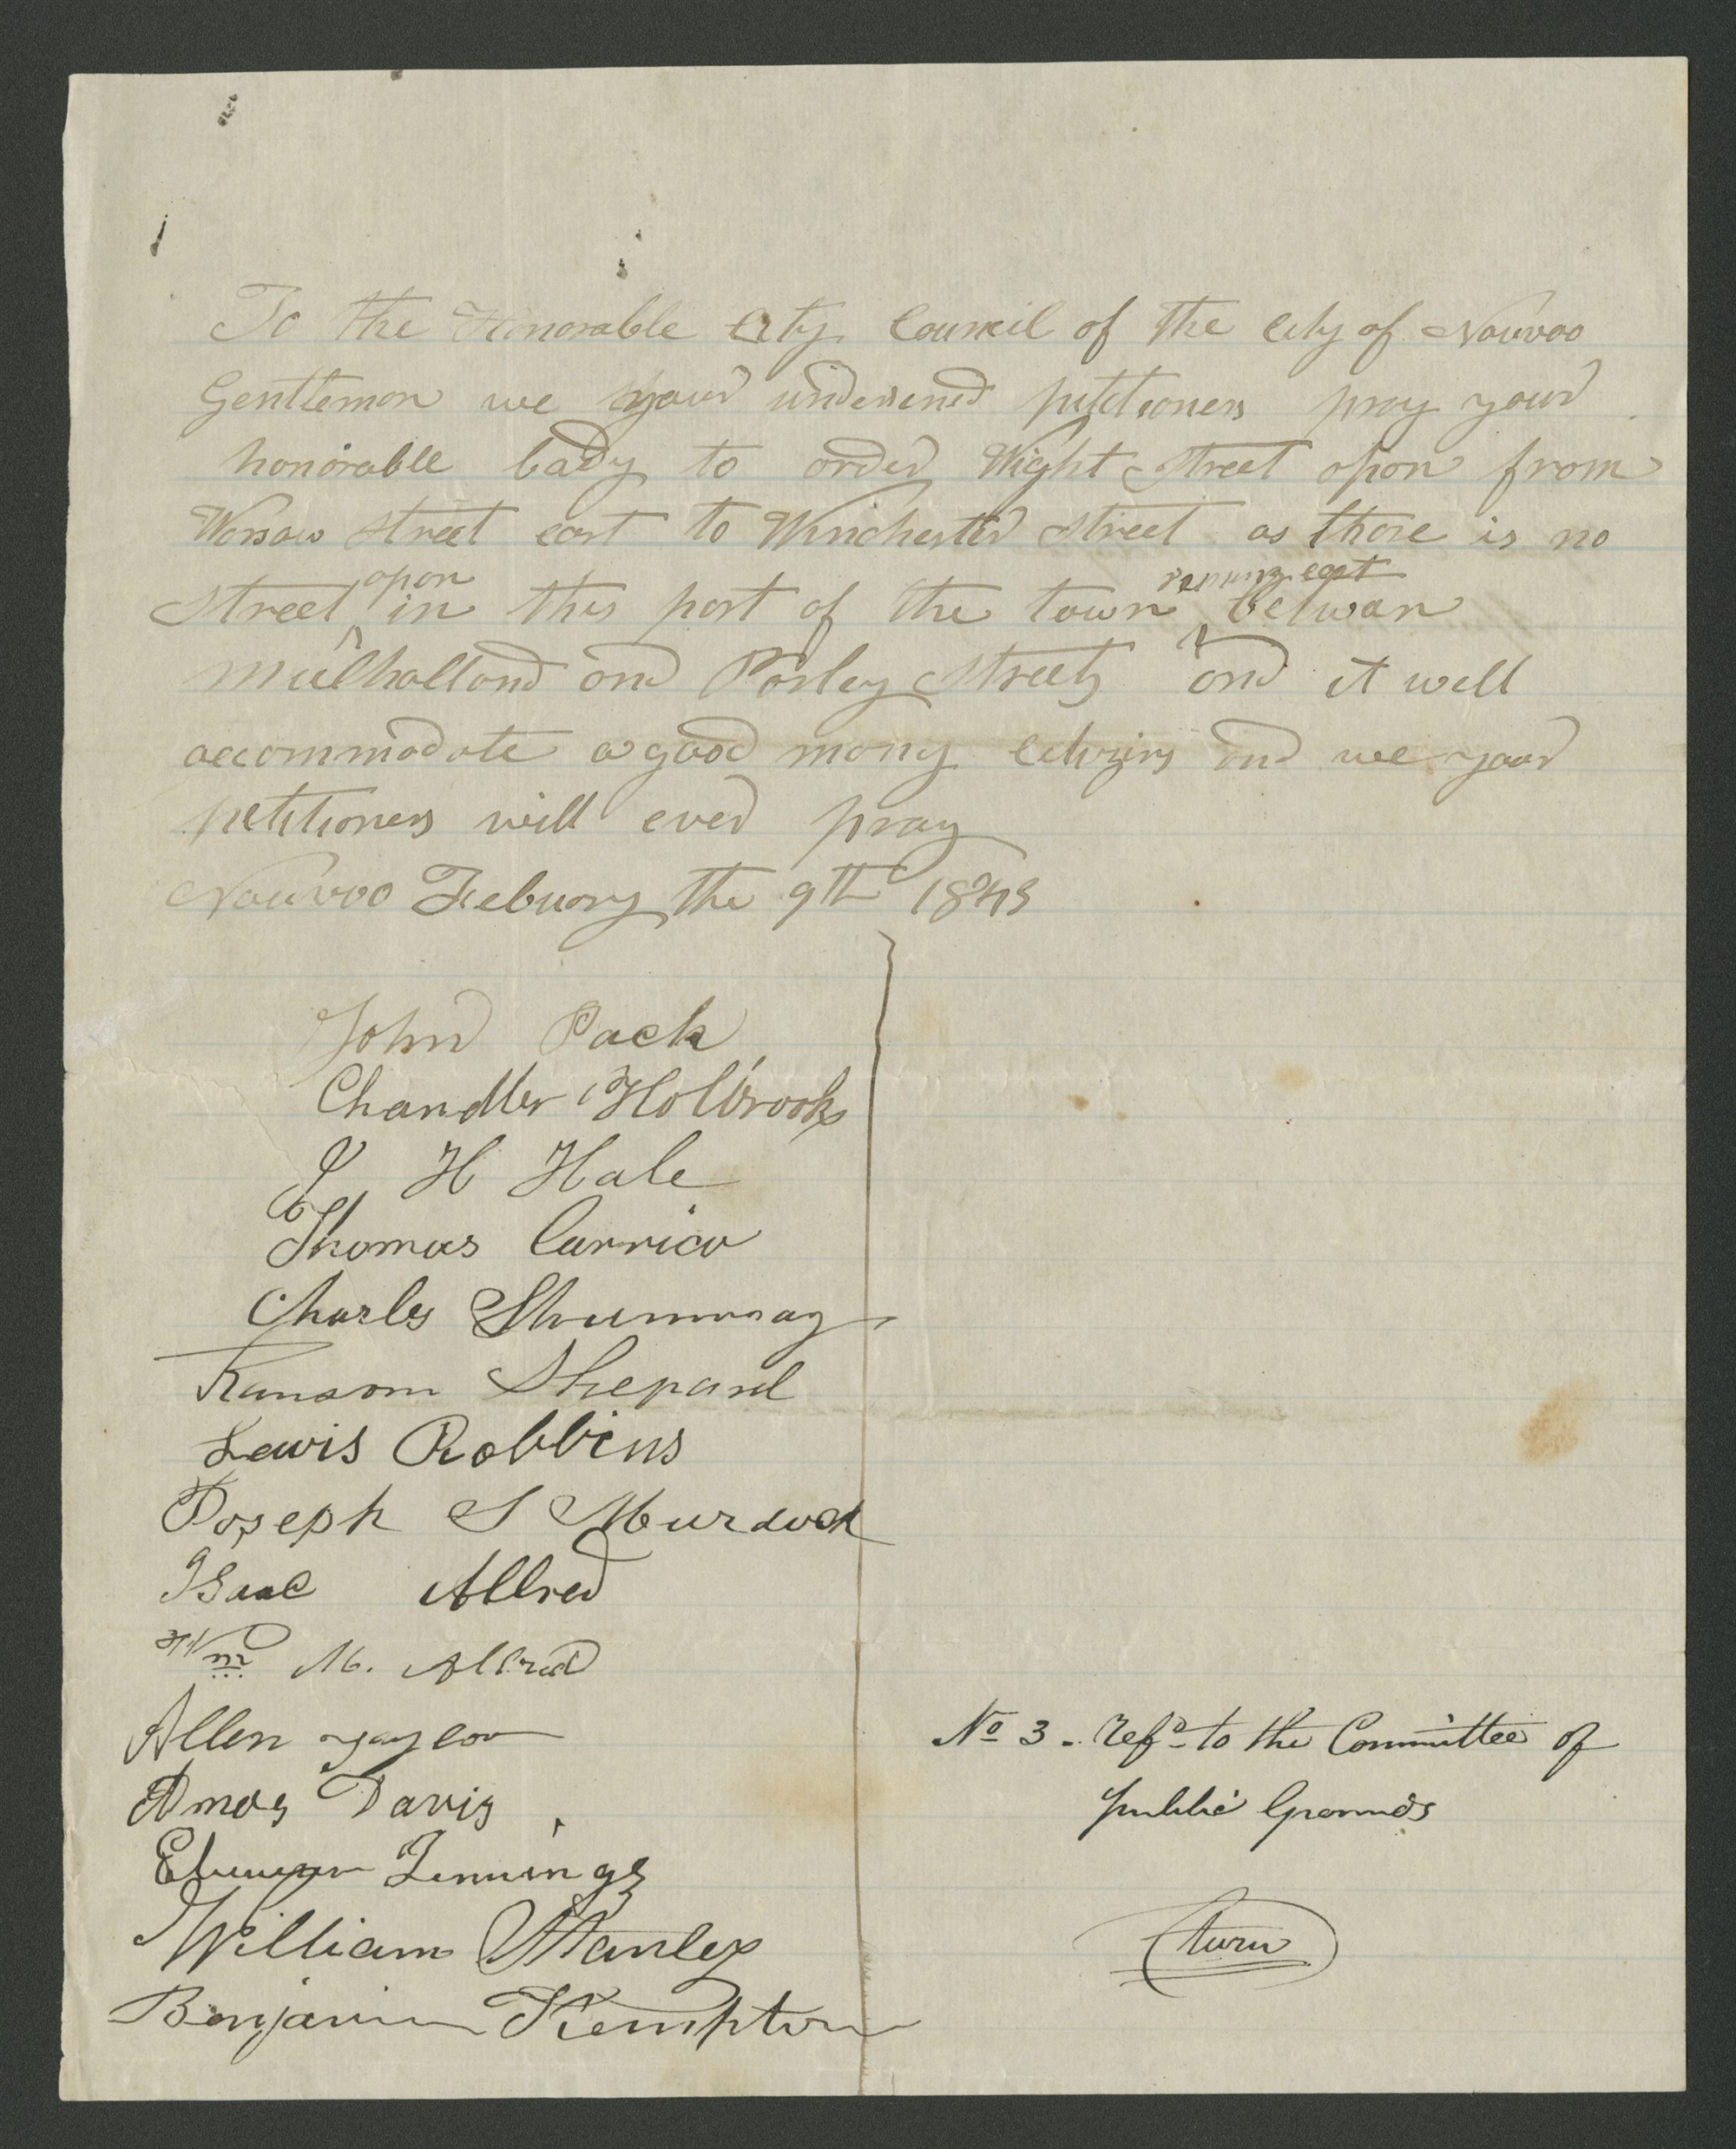 To the Honorable City Council of the City of Nauvoo
Gentlemon we your undersined petitioners pray your
honorable body to order Wight Street opon from
Warsaw Street east to Winchester Street as thare is no
opon runing east
Street in this part of the town betwan
Mulholland and Parley Streets and it will
accommodate a good many citizins and we your
petitioners will ever pray
Nauvoo Febuary the 9th 1843
John Pack
Chandler Holbrook
J H Hale
Thomas Carrico
Charles Shumway
Ransom Shepard
Lewis Robbins
Joseph S Murdock
Isaac Allred
Wm M. Allred
Allen
Amos Davis
Ebenezer Jennings
William Stanley
Benjamin Kempton
No 3 - refd to the Committee of
public Grounds
turn